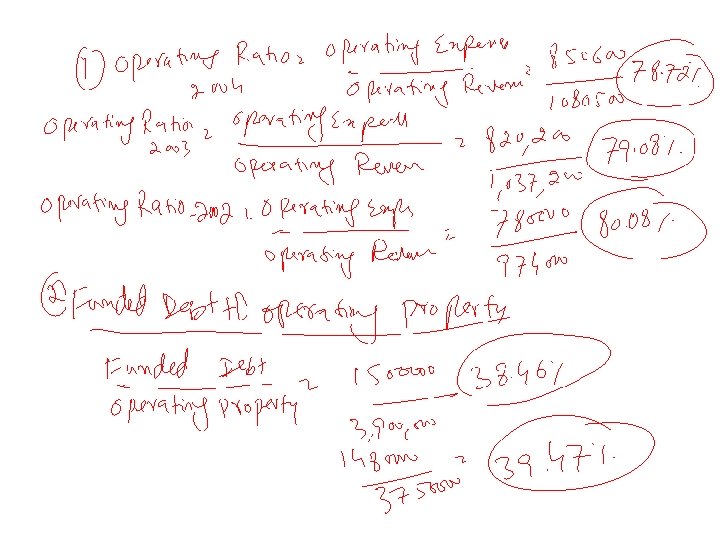 ① Operating Ratio 2004 = Operating Expense / Operating Revenue = 850600 / 1080500 78.72%
Operating Ratio 2003 = Operating Expense / Operating Revenue = 820,200 / 1,037,200 79.08%
Operating Ratio 2002 = Operating / Operating Revenue = 780000 / 974000 80.08%
② Funded Debt to operating property
Funded Debt / Operating property = 1500000 / 3,900,000 38.46%
1480000 / 3750000 = 39.47%